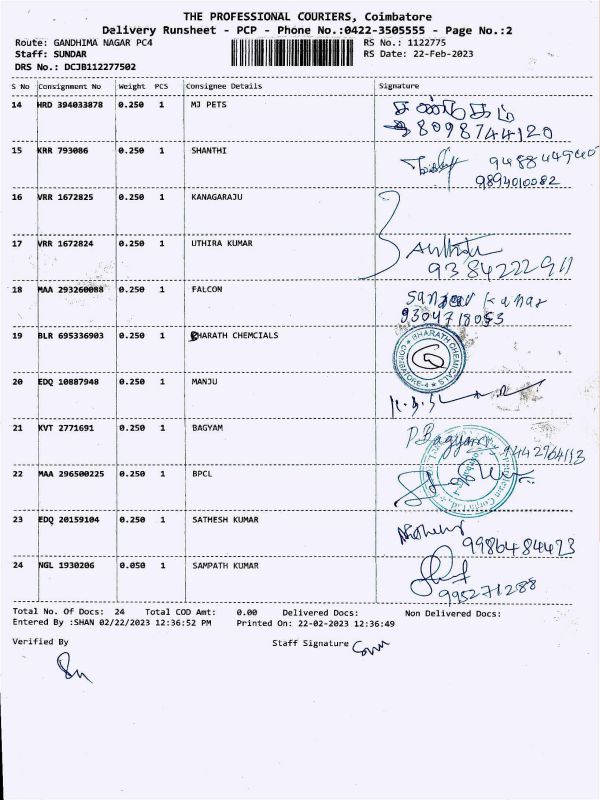 THE PROFESSIONAL COURIERS, Coimbatore
Delivery Runsheet - PCP - Phone No.:0422-3505555 - Page No.:2
Route: GANDHIMA NAGAR PC4 RS No.: 1122775
Staff: SUNDAR RS Date: 22-Feb-2023
DRS No.: DCJB112277502
S No Consignment No Weight PCS Consignee Details Signature
14 HRD 394033878 0.250 1 MJ PETS
8098744120
15 KRR 793086 0.250 1 SHANTHI
9894010082
16 VRR 1672825 0.250 1 KANAGARAJU
17 VRR 1672824 0.250 1 UTHIRA KUMAR
18 MAA 293260088 0.250 1 FALCON
Sanjeev Kumar
9304718053
19 BLR 695336903 0.250 1 BHARATH CHEMCIALS
BHARATH CHEMICALS
COIMBATORE-4
20 EDQ 10887948 0.250 1 MANJU
21 KVT 2771691 0.250 1 BAGYAM
P. Bagyam
22 MAA 296500225 0.250 1 BPCL
23 EDQ 20159104 0.250 1 SATHESH KUMAR
9986484423
24 NGL 1930206 0.050 1 SAMPATH KUMAR
995271288
Total No. Of Docs: 24 Total COD Amt: 0.00 Delivered Docs: Non Delivered Docs:
Entered By :SHAN 02/22/2023 12:36:52 PM Printed On: 22-02-2023 12:36:49
Verified By Staff Signature